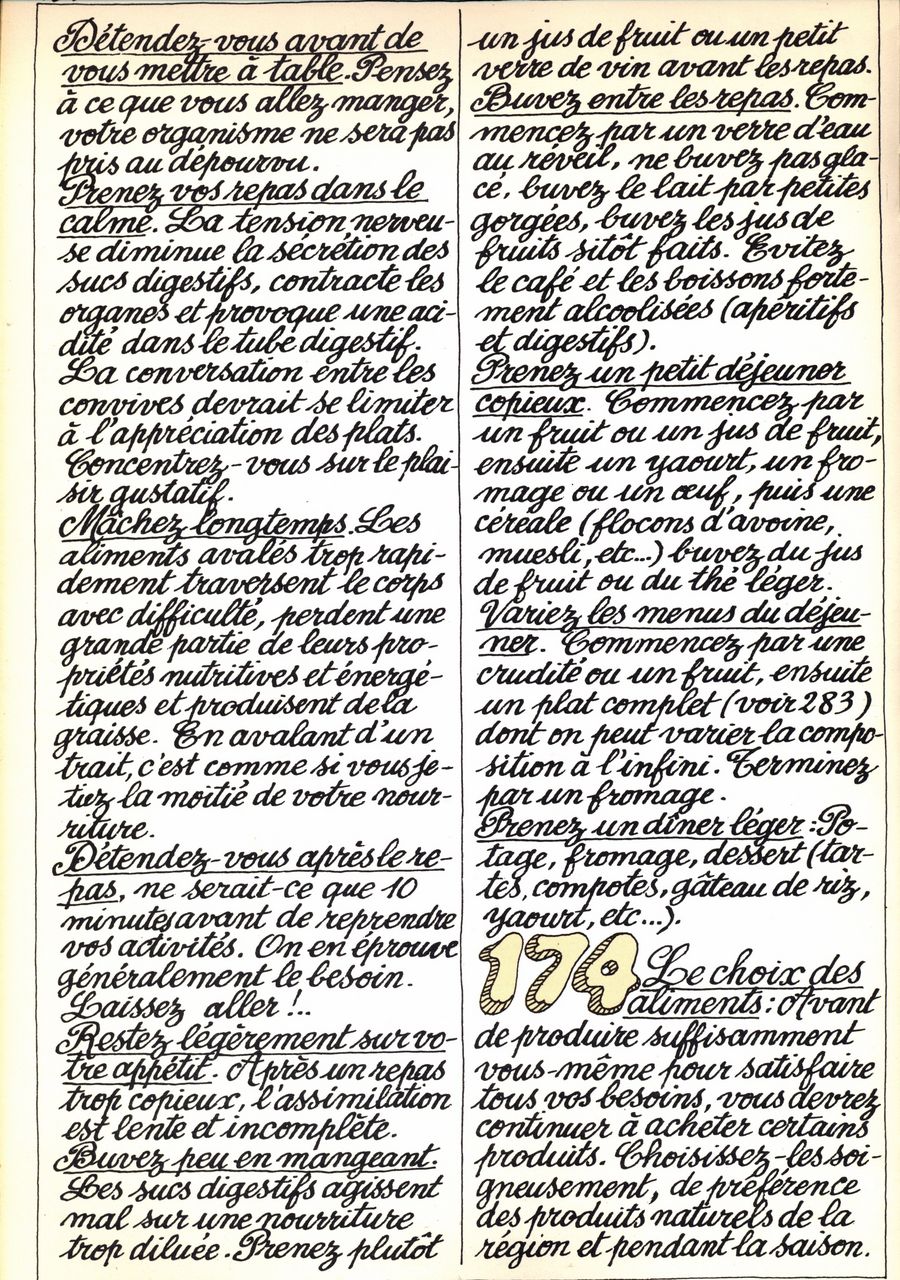 Détendez-vous avant de
vous mettre à table. Pensez
à ce que vous allez manger,
votre organisme ne sera pas
pris au dépourvu.
Prenez vos repas dans le
calme. La tension nerveu-
se diminue la sécrétion des
sucs digestifs, contracte les
organes et provoque une aci-
dité dans le tube digestif.
La conversation entre les
convives devrait se limiter
à l'appréciation des plats.
Concentrez-vous sur le plai-
sir gustatif.
Mâchez longtemps. Les
aliments avalés trop rapi-
dement traversent le corps
avec difficulté, perdent une
grande partie de leurs pro-
priétés nutritives et énergé-
tiques et produisent de la
graisse. En avalant d'un
trait, c'est comme si vous je-
tiez la moitié de votre nour-
riture.
Détendez-vous après le re-
pas, ne serait-ce que 10
minutes avant de reprendre
vos activités. On en éprouve
généralement le besoin.
Laissez aller !..
Restez légèrement sur vo-
tre appétit. Après un repas
trop copieux, l'assimilation
est lente et incomplète.
Buvez peu en mangeant.
Les sucs digestifs agissent
mal sur une nourriture
trop diluée. Prenez plutôt
un jus de fruit ou un petit
verre de vin avant les repas.
Buvez entre les repas. Com-
mencez par un verre d'eau
au réveil, ne buvez pas gla-
cé, buvez le lait par petites
gorgées, buvez les jus de
fruits sitôt faits. Evitez
le café et les boissons forte-
ment alcoolisées (apéritifs
et digestifs).
Prenez un petit déjeuner
copieux. Commencez par
un fruit ou un jus de fruit,
ensuite un yaourt, un fro-
mage ou un œuf, puis une
céréale (flocons d'avoine,
muesli, etc...) buvez du jus
de fruit ou du thé léger.
Variez les menus du déjeu-
ner. Commencez par une
crudité ou un fruit, ensuite
un plat complet (voir 283)
dont on peut varier la compo-
sition à l'infini. Terminez
par un fromage.
Prenez un dîner léger : Po-
tage, fromage, dessert (tar-
tes, compotes, gâteau de riz,
yaourt, etc...).
174 Le choix des
aliments : Avant
de produire suffisamment
vous-même pour satisfaire
tous vos besoins, vous devrez
continuer à acheter certains
produits. Choisissez-les soi-
gneusement, de préférence
des produits naturels de la
région et pendant la saison.